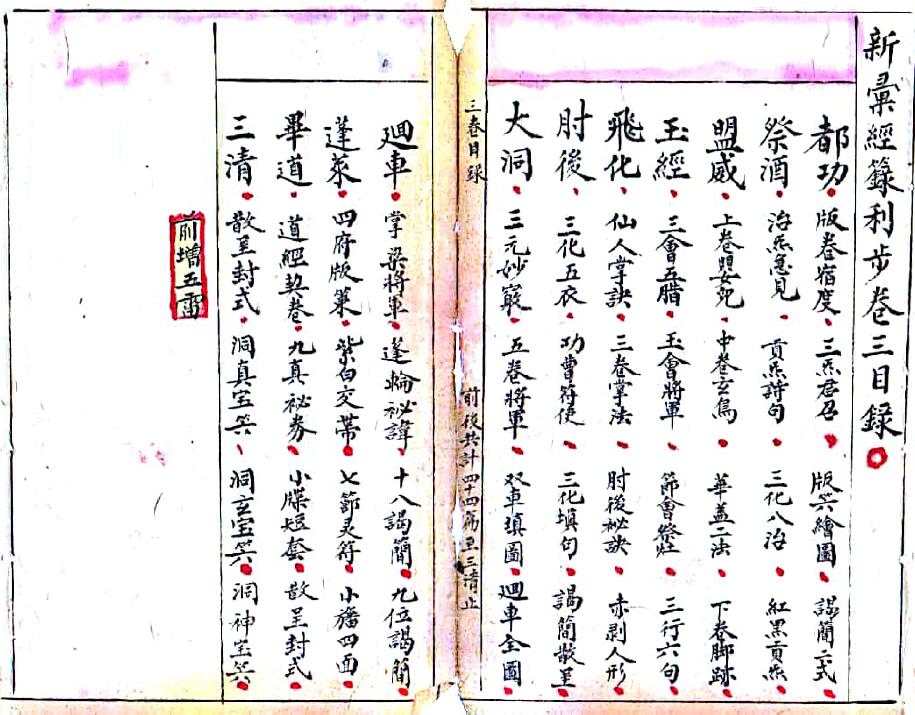 新彙經籙利步卷三目錄
都功 版卷宿度 三炁君召 版笑繪圖 謁簡二式
祭酒 治炁急見 貢炁詩句 三化八治 紅黑貢炁
盟威 上卷 中卷玄鳥 華盖二法 下卷脚跡
玉經 三會五腊 玉會將軍 節會 三行六句
飛化 仙人掌訣 三卷掌法 肘後祕訣 赤剥人形
肘後 三化五衣 功曹符使 三化填句 謁簡散呈
大洞 三元妙窽 五卷將軍 双車填圖 廻車全圖
三卷目錄 前後共計四十四篇至三清止
廻車 掌梁將軍 逢輪祕諱 十八謁簡 九位謁簡
蓬萊 四府版策 紫白交帶 七節灵符 小旛四面
畢道 道經契卷 九真祕券 小牒短套 散呈封式
三清 散呈封式 洞真宝笑 洞玄宝笑 洞神宝笑
前增五雷